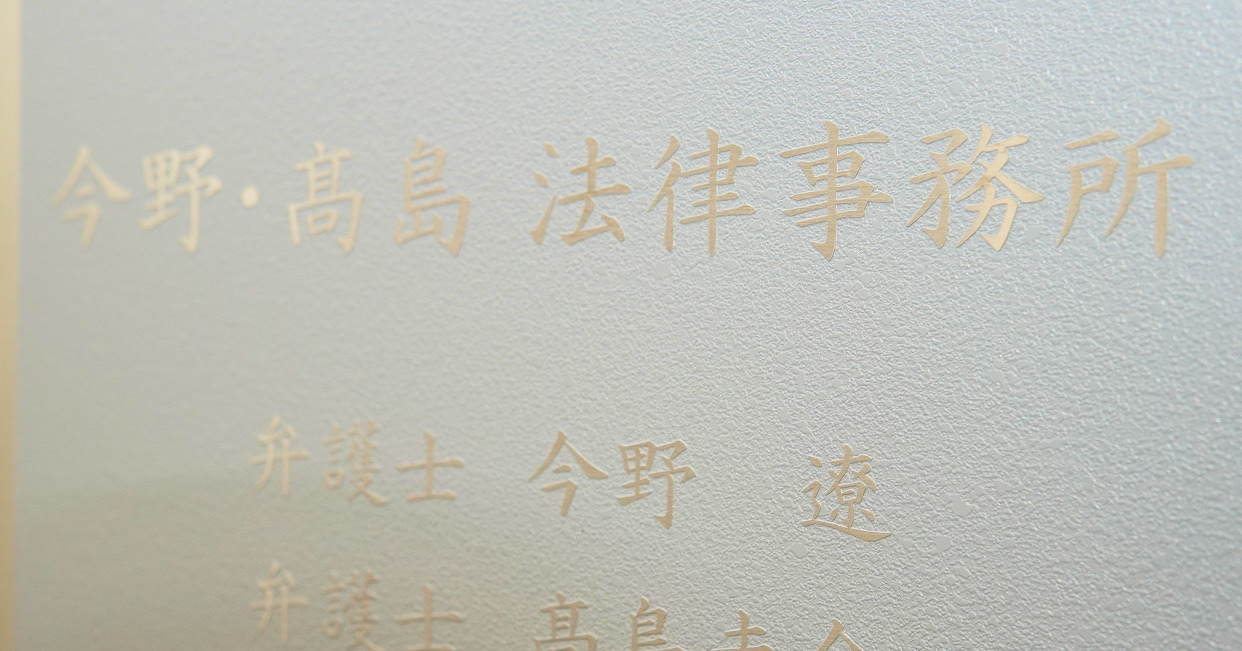 今野・髙島 法律事務所
弁護士 今野 遼
弁護士 髙島